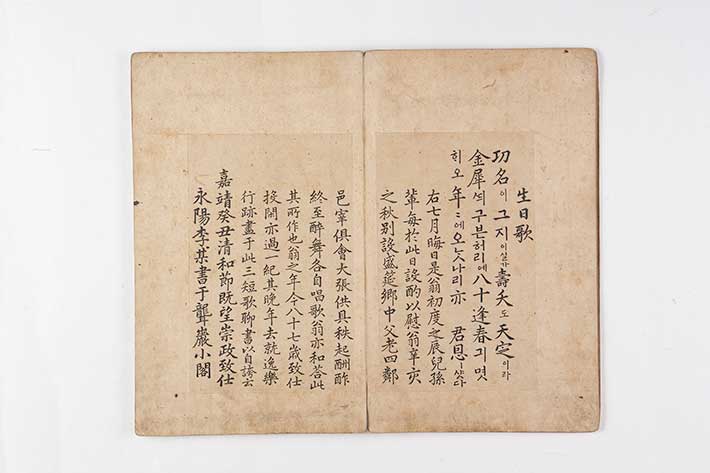 生日歌
功名이 그지이실가 壽夭도 天定이라
金犀ᄯᅴ 구븐허리예 八十逢春 긔 몃
ᄒᆡ오 年〻에 오ᄂᆞᆺ나리 亦 君恩이샷다
右七月晦日是翁初度之辰兒孫
輩每於此日設酌以慰翁辛亥
之秋別設盛筵鄕中父老四鄰
邑宰俱會大張供具秩起酬酢
終至醉舞各自唱歌翁亦和答此
其所作也翁之年今八十七歲致仕
投閑亦過一紀其晚年去就逸樂
行跡盡于此三短歌聊書以自誇云
嘉靖癸丑清和節既望崇政致仕
永陽李某書于聾巖小閣